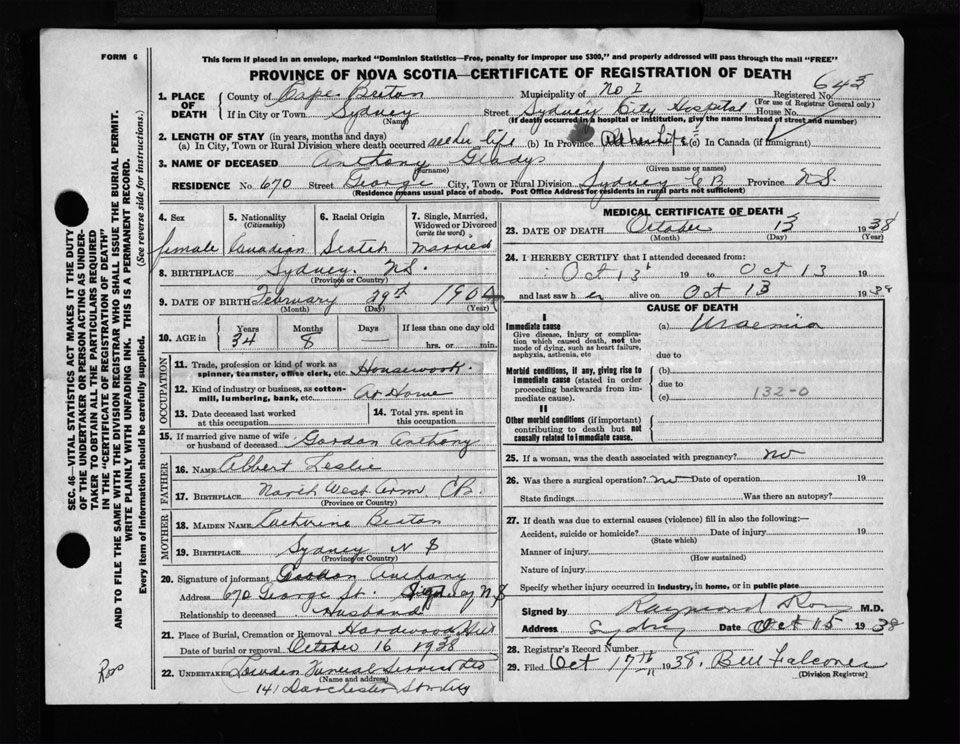 FORM 6
This form if placed in an envelope, marked "Dominion Statistics—Free, penalty for improper use $300," and properly addressed will pass through the mail "FREE"
PROVINCE OF NOVA SCOTIA—CERTIFICATE OF REGISTRATION OF DEATH
1. PLACE OF DEATH
County of Cape Breton Municipality of No 1 Registered No. 643
(For use of Registrar General only)
If in City or Town Sydney Street Sydney City Hospital House No.
(Name) (If death occurred in a hospital or institution, give the name instead of street and number)
2. LENGTH OF STAY (in years, months and days)
(a) In City, Town or Rural Division where death occurred all her life (b) In Province All her life (c) In Canada (if immigrant)
3. NAME OF DECEASED Anthony Gladys
(Given name or names)
RESIDENCE No. 670 Street George City, Town or Rural Division Sydney C B Province N.S.
(Residence means usual place of abode. Post Office Address for residents in rural parts not sufficient)
4. Sex female
5. Nationality (Citizenship) Canadian
6. Racial Origin Scotch
7. Single, Married, Widowed or Divorced (write the word) Married
8. BIRTHPLACE Sydney. N.S.
(Province or Country)
9. DATE OF BIRTH February 29th 1904
(Month) (Day) (Year)
10. AGE in Years 34 Months 8 Days — If less than one day old
hrs. or min.
OCCUPATION
11. Trade, profession or kind of work as spinner, teamster, office clerk, etc. Housework.
12. Kind of industry or business, as cotton-mill, lumbering, bank, etc. At Home
13. Date deceased last worked at this occupation
14. Total yrs. spent in this occupation
15. If married give name of wife or husband of deceased Gordon Anthony
FATHER
16. NAME Albert Leslie
17. BIRTHPLACE North West Arm. C.B.
(Province or Country)
MOTHER
18. MAIDEN NAME Catherine Beaton
19. BIRTHPLACE Sydney N S
(Province or Country)
20. Signature of informant Gordon Anthony
Address 670 George St. Sydney N S
Relationship to deceased Husband
21. Place of Burial, Cremation or Removal Hardwood Hill
Date of burial or removal October 16 1938
22. UNDERTAKER Lowden Funeral Service Ltd
(Name and address)
141 Dorchester St
MEDICAL CERTIFICATE OF DEATH
23. DATE OF DEATH October 13 1938
(Month) (Day) (Year)
24. I HEREBY CERTIFY that I attended deceased from:
Oct 13 19 to Oct 13 19
and last saw her alive on Oct 13 1938
CAUSE OF DEATH
I
Immediate cause
Give disease, injury or complication which caused death, not the mode of dying, such as heart failure, asphyxia, asthenia, etc
(a) Uraemia
due to
Morbid conditions, if any, giving rise to immediate cause (stated in order proceeding backwards from immediate cause).
(b)
due to
(c) 132-0
II
Other morbid conditions (if important) contributing to death but not causally related to immediate cause.
25. If a woman, was the death associated with pregnancy? no
26. Was there a surgical operation? no Date of operation 19
State findings Was there an autopsy?
27. If death was due to external causes (violence) fill in also the following:—
Accident, suicide or homicide? Date of injury 19
(State which)
Manner of injury
(How sustained)
Nature of injury
Specify whether injury occurred in industry, in home, or in public place
Signed by Raymond Ross M.D.
Address Sydney Date Oct 15 1938
28. Registrar's Record Number
29. Filed Oct 17th 1938. Bell Falconer
(Division Registrar)
SEC. 46—VITAL STATISTICS ACT MAKES IT THE DUTY
OF THE UNDERTAKER OR PERSON ACTING AS UNDER-
TAKER TO OBTAIN ALL THE PARTICULARS REQUIRED
IN THE "CERTIFICATE OF REGISTRATION OF DEATH"
AND TO FILE THE SAME WITH THE DIVISION REGISTRAR WHO SHALL ISSUE THE BURIAL PERMIT.
WRITE PLAINLY WITH UNFADING INK. THIS IS A PERMANENT RECORD.
Every item of information should be carefully supplied. (See reverse side for instructions.)